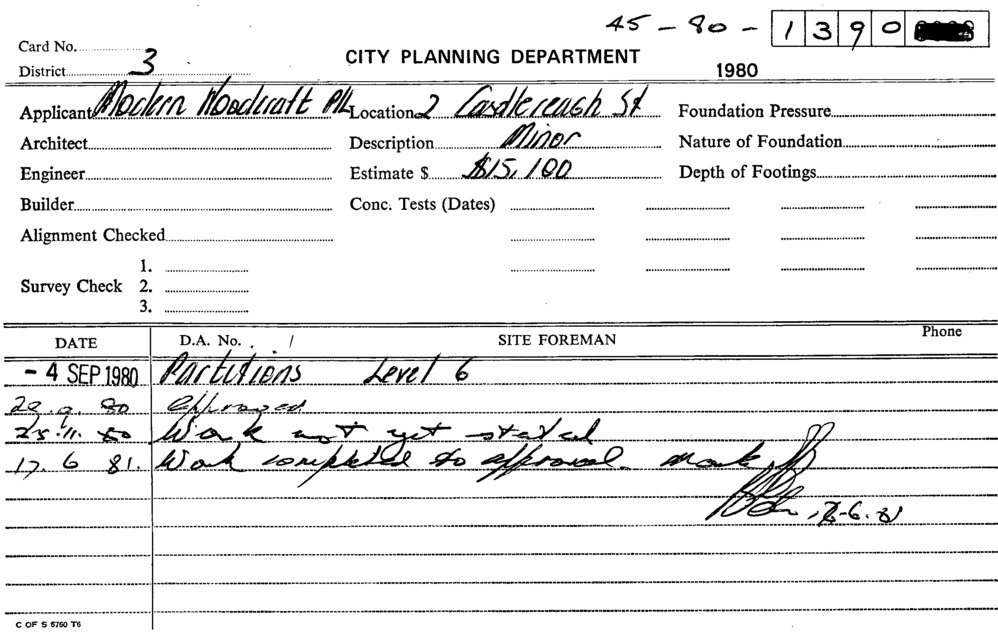 45 - 80 - 1390
Card No.
District 3
CITY PLANNING DEPARTMENT
1980
Applicant Modern Woodcraft P/L Location 2 Castlereagh St Foundation Pressure
Architect Description Minor Nature of Foundation
Engineer Estimate $ $15,100 Depth of Footings
Builder Conc. Tests (Dates)
Alignment Checked
1.
Survey Check 2.
3.
DATE D.A. No. / SITE FOREMAN Phone
- 4 SEP 1980 Partitions Level 6
80 approved
25.11.80 Work not yet started
17.6 81. Work completed to approval.
6.81
C OF S 6760 T6